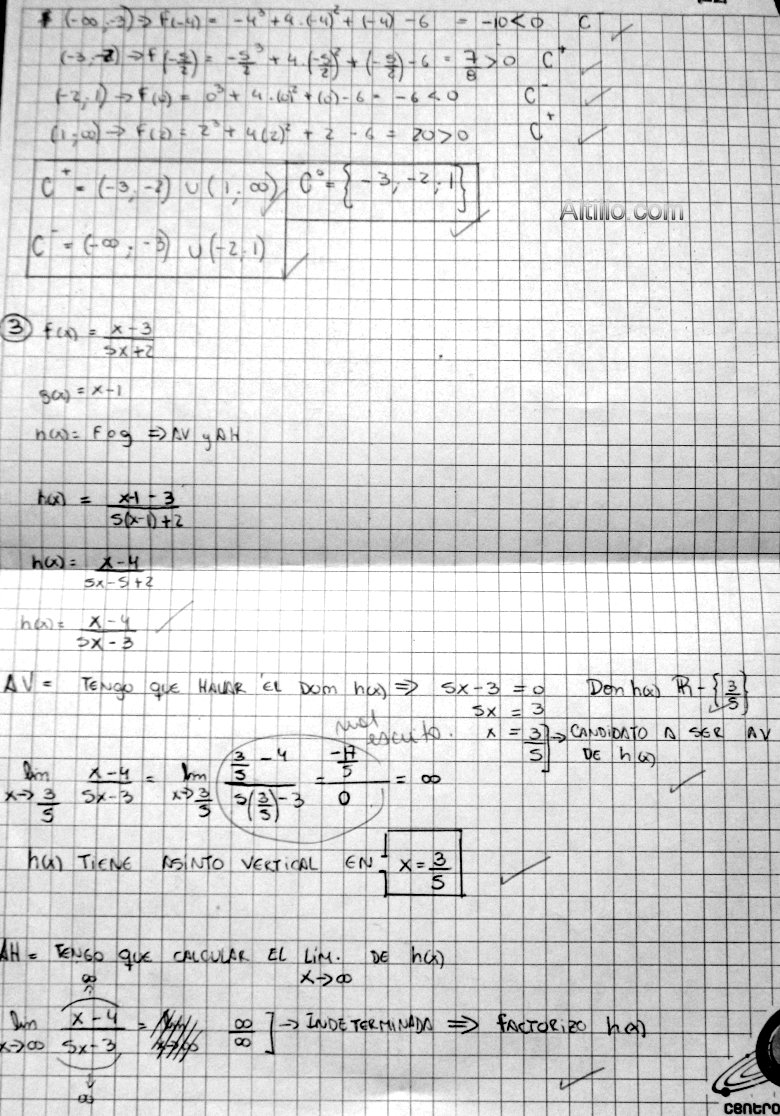 (-∞,-3) ⇒ f(-4) = -4³ + 4.(-4)² + (-4) - 6 = -10 < 0 C⁻
(-3,-2) → f(-5/2) = -5/2³ + 4.(-5/2)² + (-5/2) - 6 = 7/8 > 0 C⁺
(-2;1) → f(0) = 0³ + 4.(0)² + (0) - 6 = -6 < 0 C⁻
(1;∞) → f(2) = 2³ + 4(2)² + 2 - 6 = 20 > 0 C⁺
C⁺ = (-3,-2) ∪ (1;∞) C° = {-3,-2,1}
Altillo.com
C⁻ = (-∞;-3) ∪ (-2;1)
3 f(x) = x-3/5x+2
g(x) = x-1
h(x) = fog ⇒ AV y AH
h(x) = x-1-3/5(x-1)+2
h(x) = x-4/5x-5+2
h(x) = x-4/5x-3
AV = TENGO QUE HALLAR EL DOM h(x) ⇒ 5x-3 = 0 Dom h(x) R-{3/5}
5x = 3
mal escrito. x = 3/5] → CANDIDATO A SER AV DE h(x)
lim x→3/5 x-4/5x-3 = lim x→3/5 3/5-4/5(3/5)-3 = -17/5/0 = ∞
h(x) TIENE ASINTO VERTICAL EN x = 3/5
AH = TENGO QUE CALCULAR EL LIM. DE h(x)
x→∞
∞
lim x→∞ x-4/5x-3 = ∞/∞] → INDETERMINADA ⇒ FACTORIZO h(x)
∞
centro